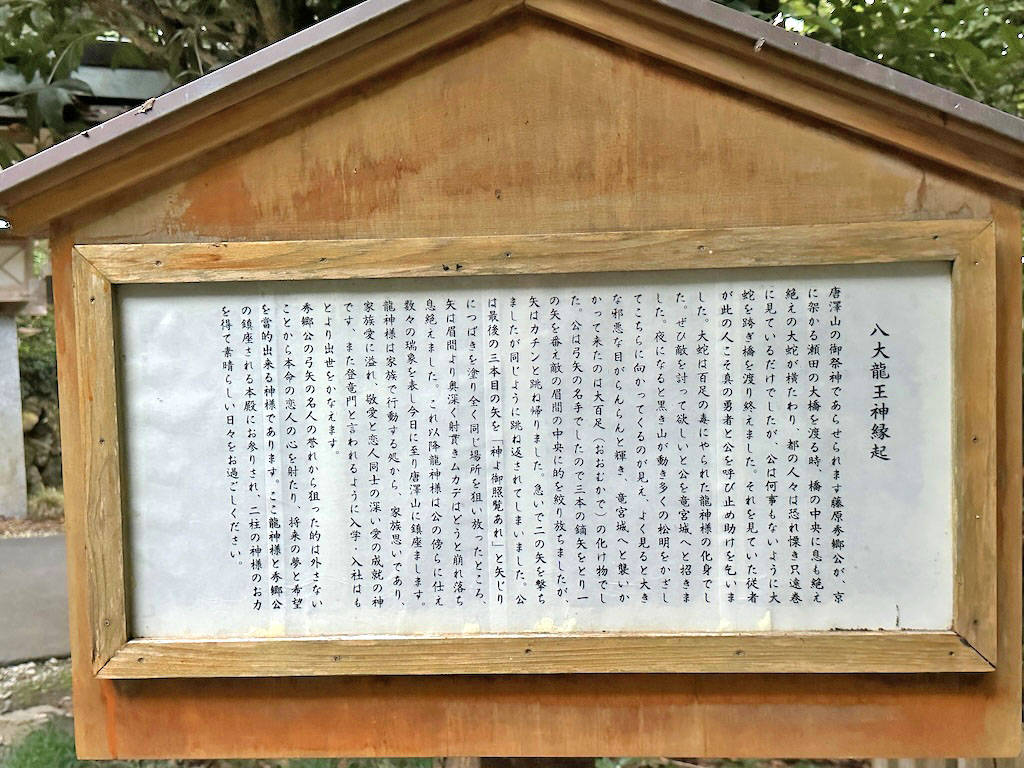 八大龍王神縁起
唐澤山の御祭神であらせられます藤原秀郷公が、京
に架かる瀬田の大橋を渡る時、橋の中央に息も絶え
絶えの大蛇が横たわり、都の人々は恐れ慄き只遠巻
に見ているだけでしたが、公は何事もないように大
蛇を跨ぎ橋を渡り終えました。それを見ていた従者
が此の人こそ真の勇者と公を呼び止め助けを乞いま
した。大蛇は百足の毒にやられた龍神様の化身でし
た。ぜひ敵を討って欲しいと公を竜宮城へと招きま
した。夜になると黒き山が動き多くの松明をかざし
てこちらに向かってくるのが見え、よく見ると大き
な邪悪な目がらんらんと輝き、竜宮城へと襲いか
かって来たのは大百足(おおむかで)の化け物でし
た。公は弓矢の名手でしたので三本の鏑矢をとり一
の矢を番え敵の眉間の中央に的を絞り放ちましたが、
矢はカチンと跳ね帰りました。急いで二の矢を撃ち
ましたが同じように跳ね返されてしまいました。公
は最後の三本目の矢を「神よ御照覧あれ」と矢じり
につばきを塗り全く同じ場所を狙い放ったところ、
矢は眉間より奥深く射貫きムカデはどうと崩れ落ち
息絶えました。これ以降龍神様は公の傍らに仕え
数々の瑞象を表し今日に至り唐澤山に鎮座します。
龍神様は家族で行動する処から、家族思いであり、
家族愛に溢れ、敬愛と恋人同士の深い愛の成就の神
です、また登竜門と言われるように入学・入社はも
とより出世をかなえます。
秀郷公の弓矢の名人の誉れから狙った的は外さない
ことから本命の恋人の心を射たり、将来の夢と希望
を當的出来る神様であります。ここ龍神様と秀郷公
の鎮座される本殿にお参りされ、二柱の神様のお力
を得て素晴らしい日々をお過ごしください。